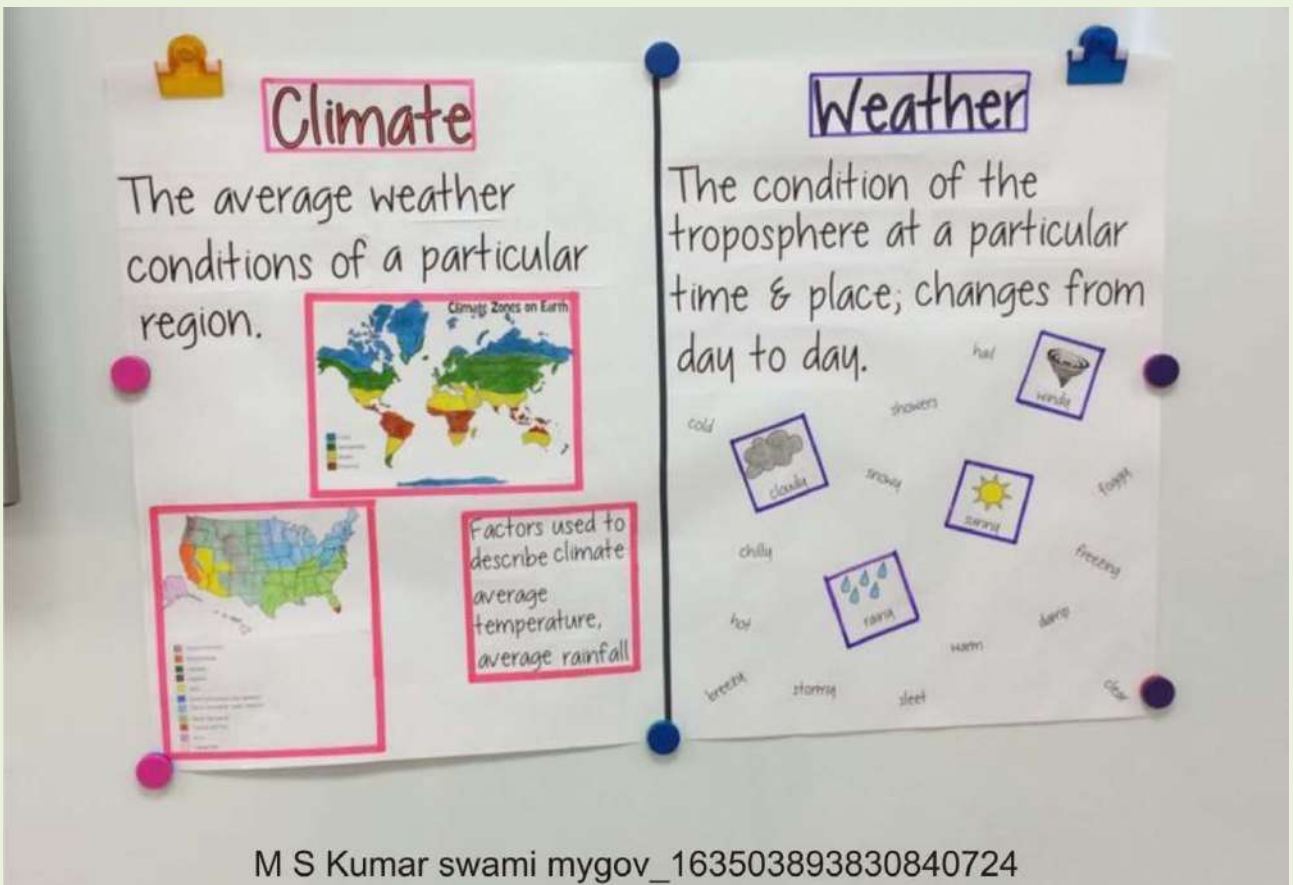 Climate
The average weather
conditions of a particular
region.
Climate Zones on Earth
Factors used to
describe climate
average
temperature,
average rainfall
Weather
The condition of the
troposphere at a particular
time & place; changes from
day to day.
hail
windy
showers
cold
cloudy
snowy
sunny
foggy
chilly
freezing
rainy
hot
damp
warm
breezy
stormy
sleet
clear
M S Kumar swami mygov_163503893830840724